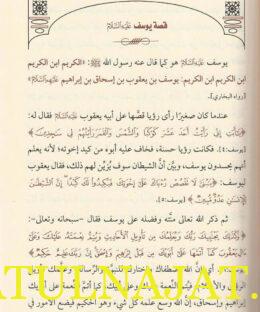 قصة يوسف عَلَيْهِ السَّلَام
يوسف عَلَيْهِ السَّلَام هو كما قال عنه رسول الله ﷺ: «الكريم ابن الكريم
ابن الكريم ابن الكريم: يوسف بن يعقوب بن إسحاق بن إبراهيم عليهم السلام»
[رواه البخاري].
عندما كان صغيرًا رأى رؤيا قصَّها على أبيه يعقوب عَلَيْهِ السَّلَام فقال له:
﴿يَا أَبَتِ إِنِّي رَأَيْتُ أَحَدَ عَشَرَ كَوْكَبًا وَالشَّمْسَ وَالْقَمَرَ رَأَيْتُهُمْ لِي سَاجِدِينَ﴾
[يوسف:٤]. فكانت رؤيا حسنة، فخاف عليه أبوه من كيد إخوته؛ لأنه يعلم
أنهم يحسدون يوسف، وبيَّن أنَّ الشيطان سوف يُزيِّن لهم ذلك؛ فقال يعقوب
ليوسف: ﴿يَا بُنَيَّ لَا تَقْصُصْ رُؤْيَاكَ عَلَى إِخْوَتِكَ فَيَكِيدُوا لَكَ كَيْدًا إِنَّ الشَّيْطَانَ
لِلْإِنْسَانِ عَدُوٌّ مُبِينٌ﴾ [يوسف:٥].
ثم ذكر الله تعالى منَّته وفضله على يوسف فقال -سبحانه وتعالى-:
﴿وَكَذَلِكَ يَجْتَبِيكَ رَبُّكَ وَيُعَلِّمُكَ مِنْ تَأْوِيلِ الْأَحَادِيثِ وَيُتِمُّ نِعْمَتَهُ عَلَيْكَ وَعَلَى
آلِ يَعْقُوبَ كَمَا أَتَمَّهَا عَلَى أَبَوَيْكَ مِنْ قَبْلُ إِبْرَاهِيمَ وَإِسْحَاقَ إِنَّ رَبَّكَ عَلِيمٌ حَكِيمٌ﴾
الله اصطفاك واختارك للنبوة والرسالة وعلمك
إبراهيم وإسحاق، إن الله وسع علمه كل شيء وهو الحكيم فيضع الأمور في